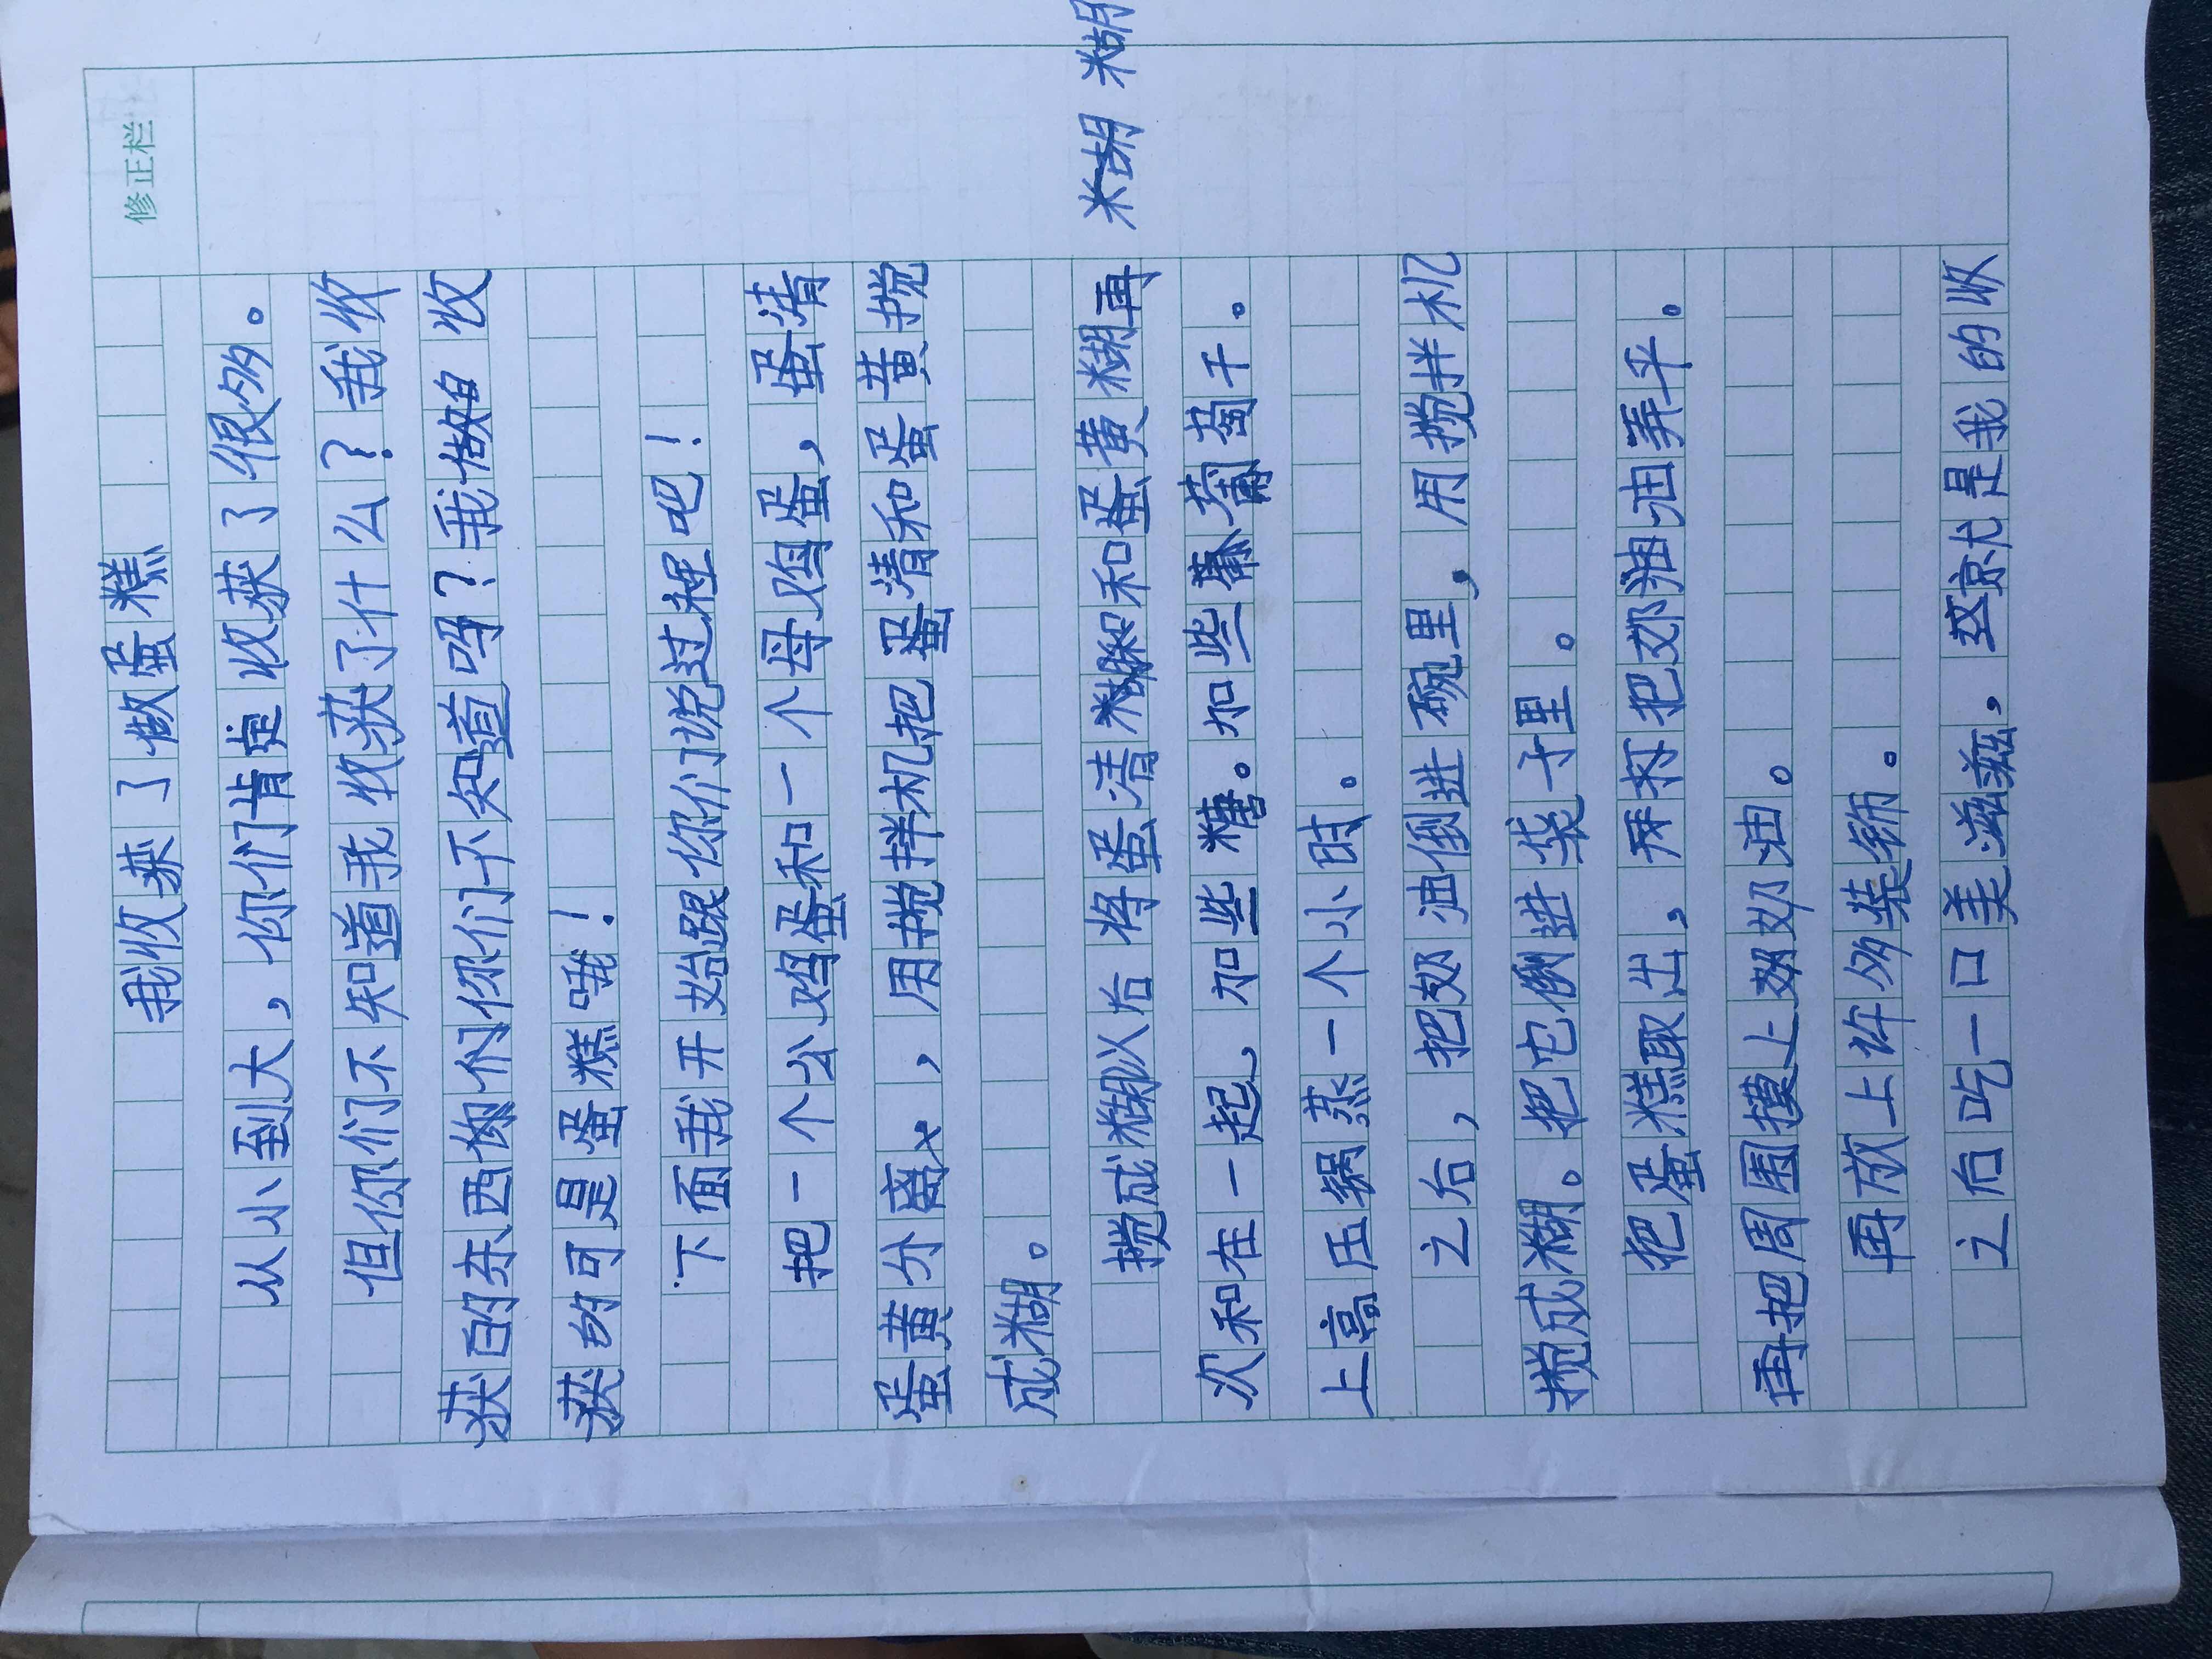 修正栏
我收获了做蛋糕
从小到大，你们肯定收获了很多。
但你们不知道我收获了什么？我收
获的东西你们你们不知道吗？我做的收
获的可是蛋糕哦！
下面我开始跟你们说过程吧！
把一个公鸡蛋和一个母鸡蛋，蛋清
蛋黄分离，用搅拌机把蛋清和蛋黄搅
成糊。
搅成糊以后将蛋清糊和蛋黄糊再
糊 糊
次和在一起，加些糖。加些葡萄干。
上高压锅蒸一个小时。
之后，把奶油倒进碗里，用搅拌机
搅成糊。把它倒进袋子里。
把蛋糕取出，再打把奶油弄平。
再把周围摸上奶油。
再放上许多装饰。
之后吃一口美滋滋。这就是我的收